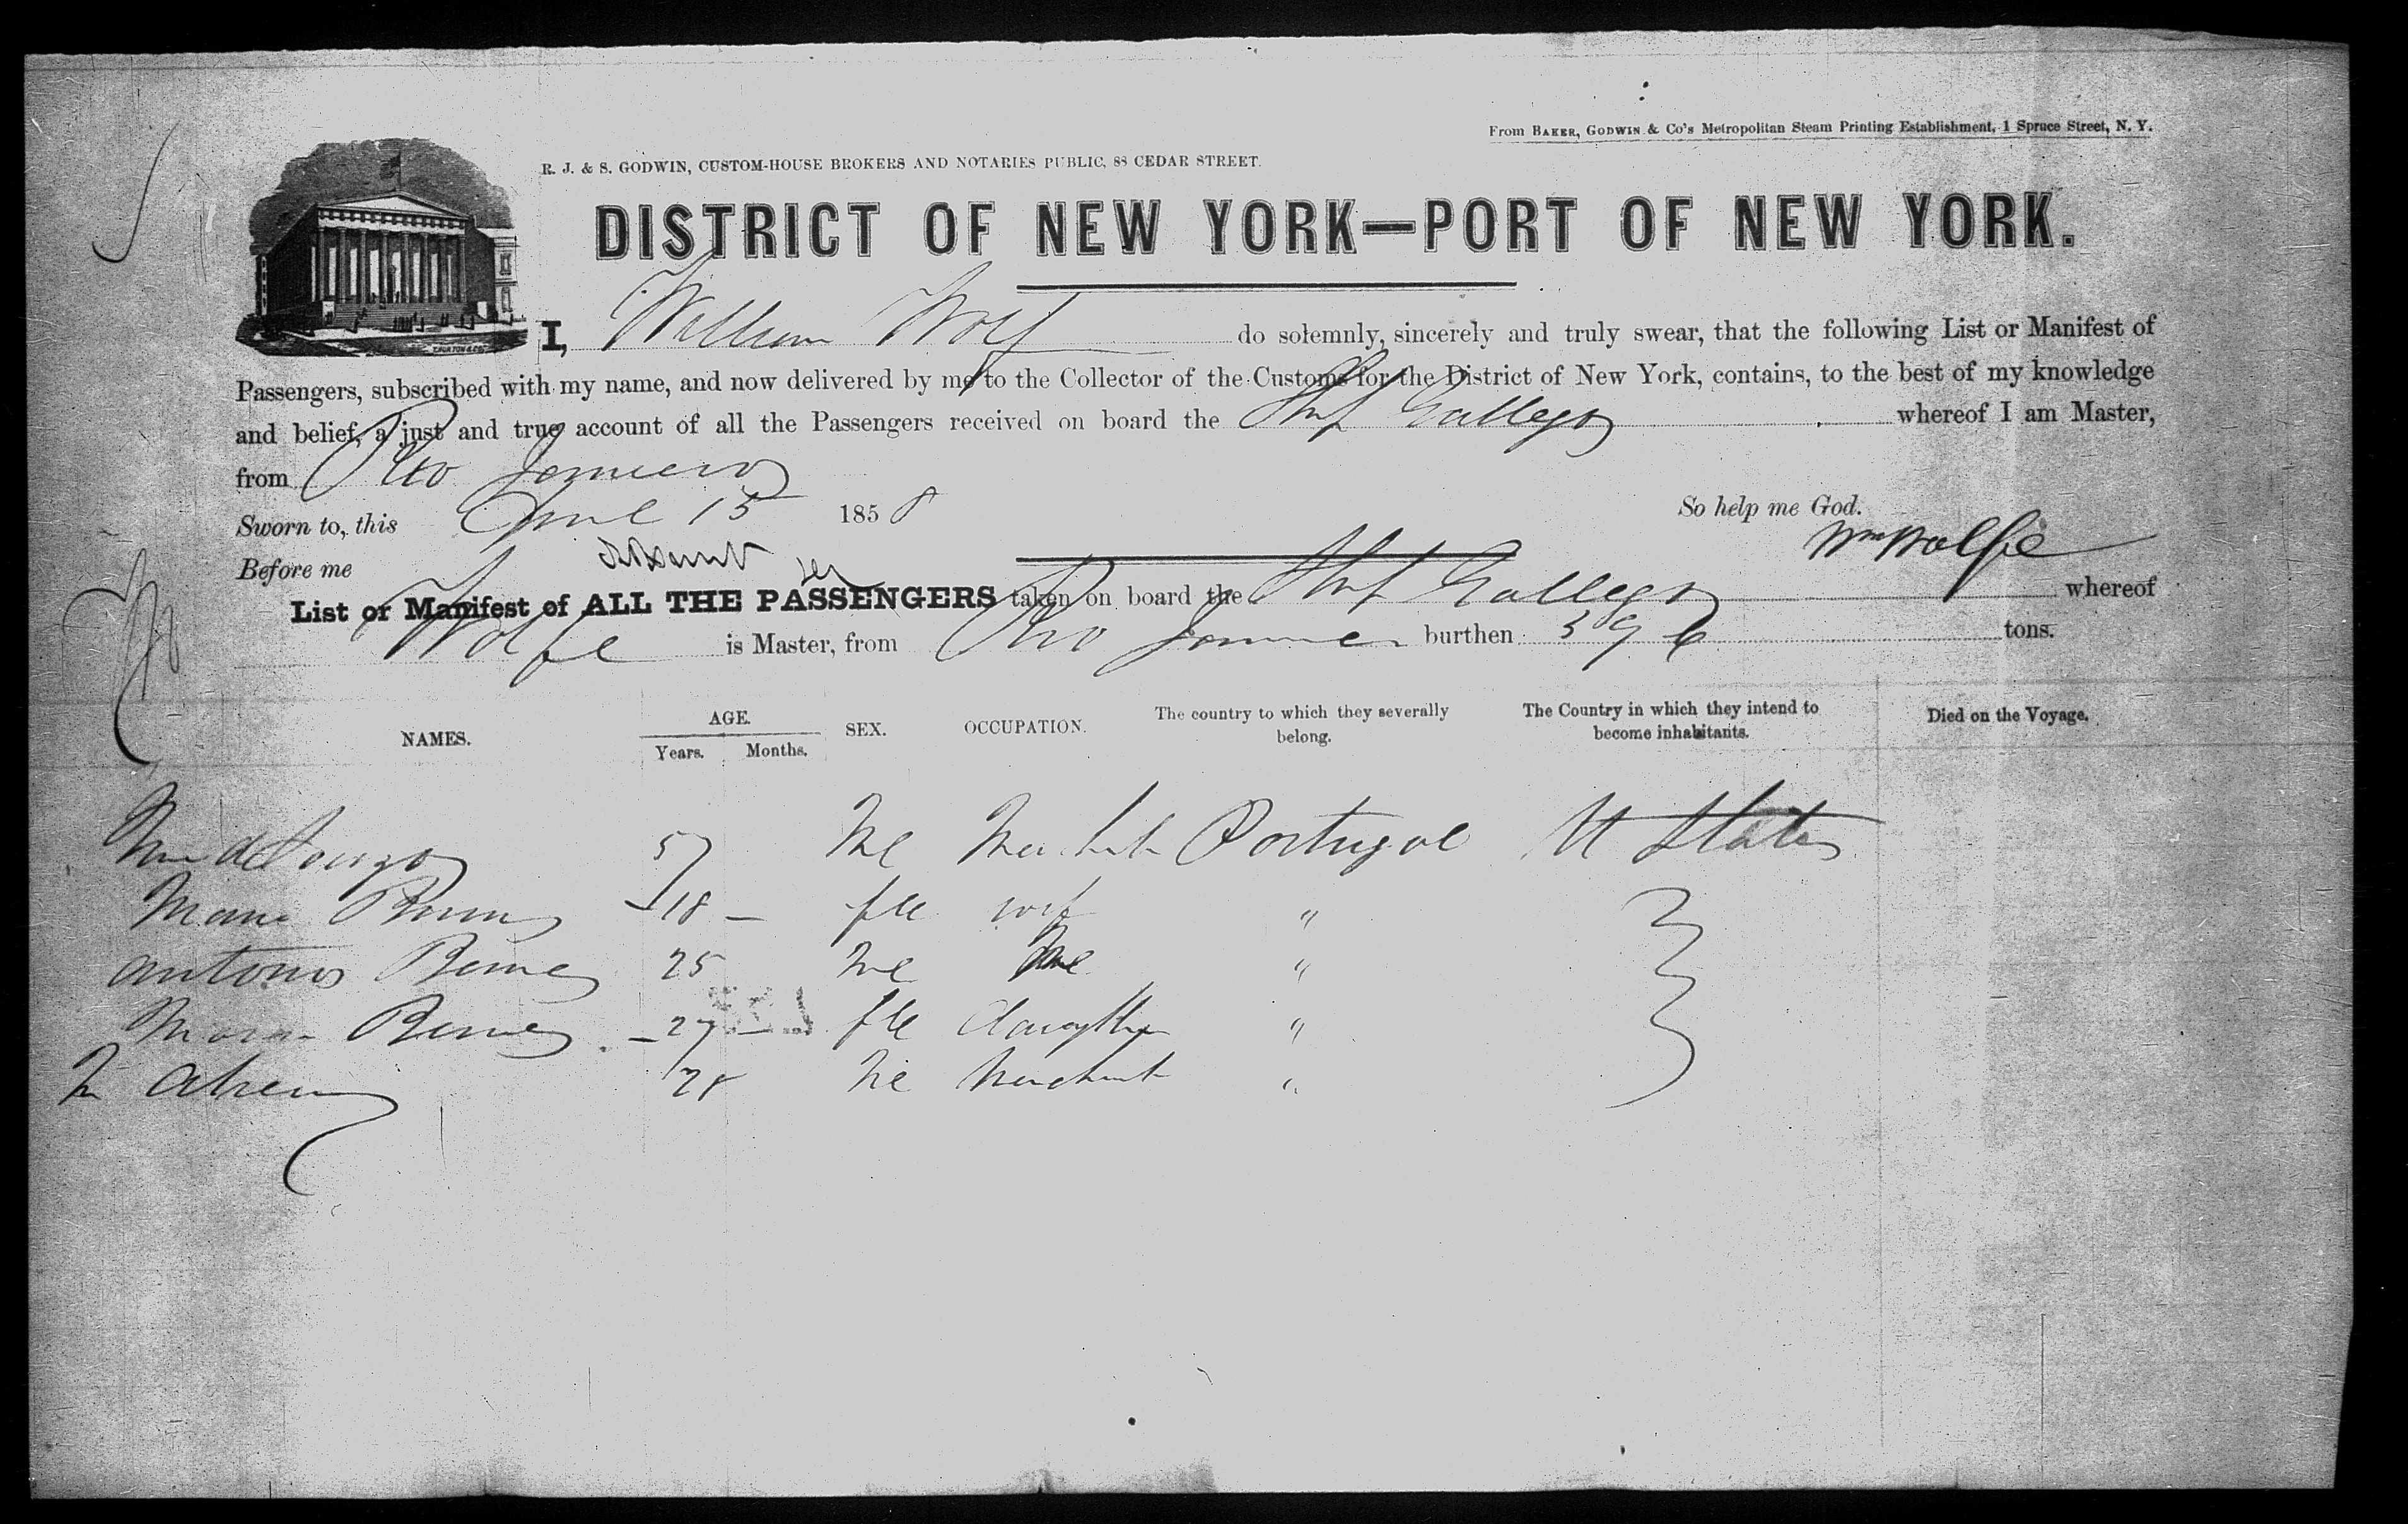 From BAKER, GODWIN & Co's Metropolitan Steam Printing Establishment, 1 Spruce Street, N. Y.
R. J. & S. GODWIN, CUSTOM-HOUSE BROKERS AND NOTARIES PUBLIC, 88 CEDAR STREET.
DISTRICT OF NEW YORK—PORT OF NEW YORK.
I, William Wolf do solemnly, sincerely and truly swear, that the following List or Manifest of
Passengers, subscribed with my name, and now delivered by me to the Collector of the Customs for the District of New York, contains, to the best of my knowledge
and belief, a just and true account of all the Passengers received on board the Ship Gallego whereof I am Master,
from Rio Janeiro
Sworn to, this June 15 1858 So help me God.
Before me Wm Wolfe
List or Manifest of ALL THE PASSENGERS taken on board the Ship Gallego whereof
Wolfe is Master, from Rio Janeiro burthen 596 tons.
NAMES. AGE. Years. Months. SEX. OCCUPATION. The country to which they severally belong. The Country in which they intend to become inhabitants. Died on the Voyage.
57 Me Portugal U States
18 — fle wife "
Antonio 25 Me "
— 27 — fle daughter "
28 Me Merchant "